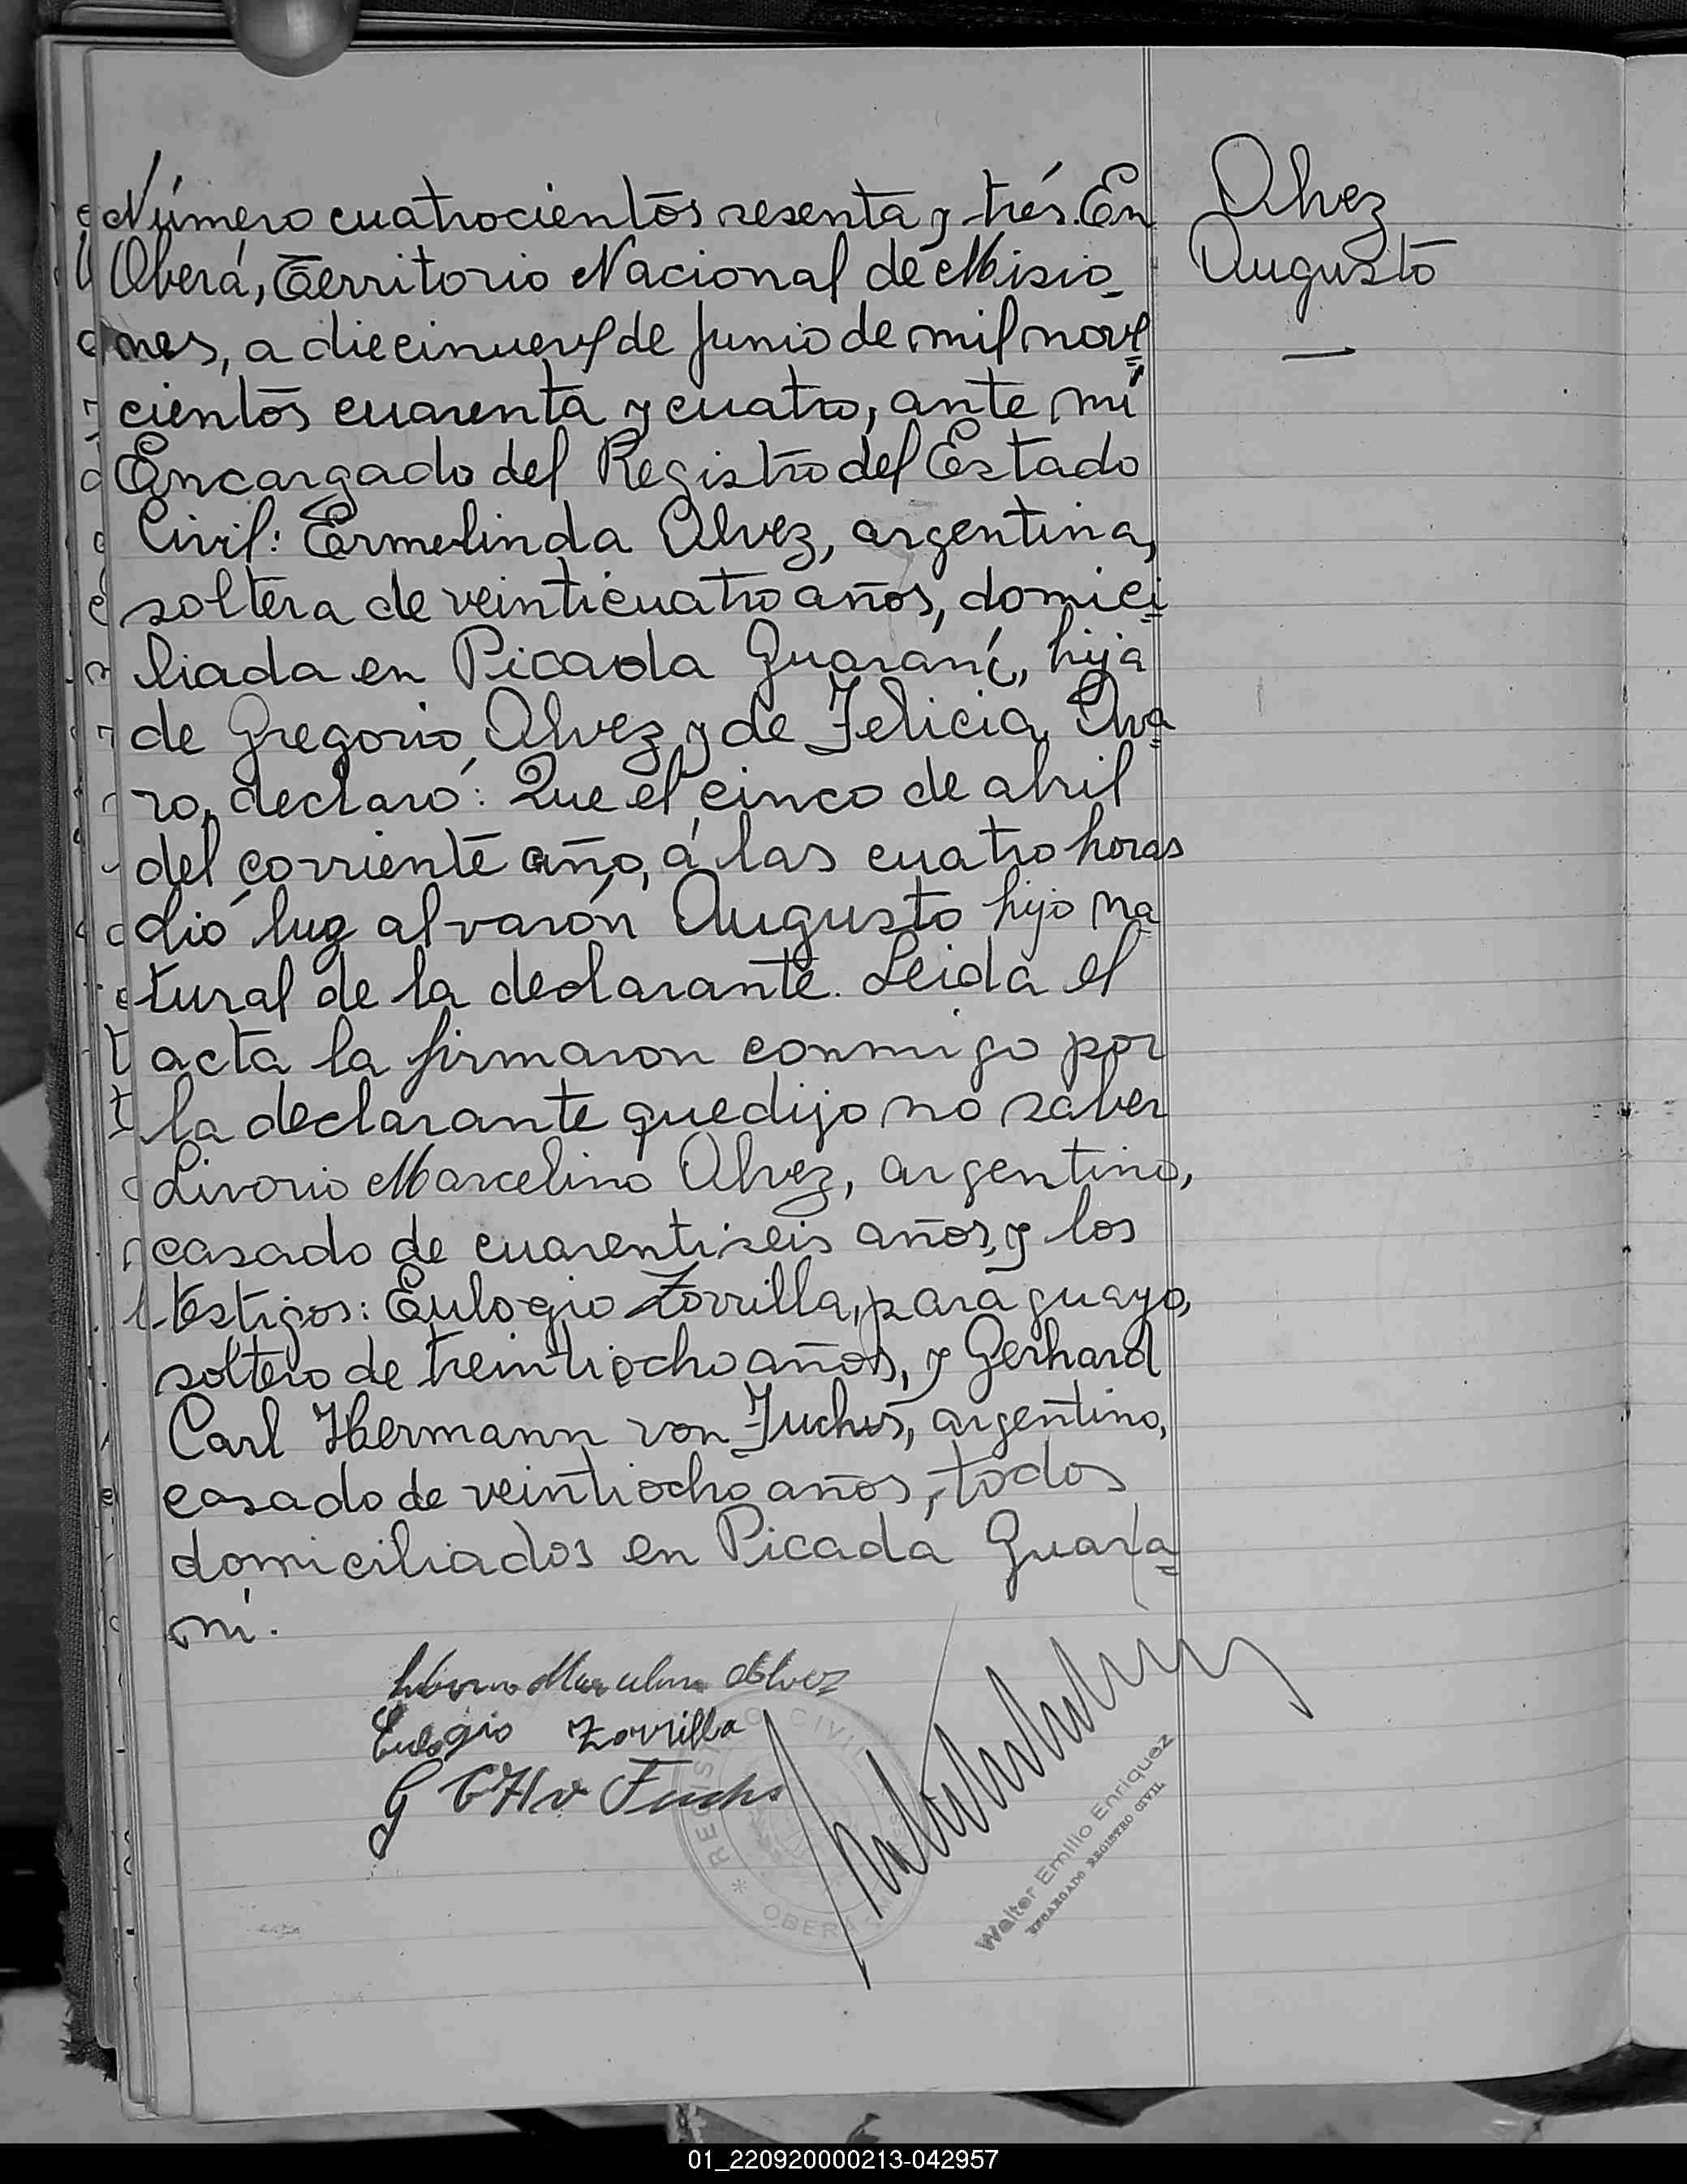 Número cuatrocientos sesenta y trés. En
Oberá, Territorio Nacional de Misio-
nes, a diecinueve de Junio de mil nove
cientos cuarenta y cuatro, ante mí
Encargado del Registro del Estado
Civil: Ermelinda Alvez, argentina,
soltera de veinticuatro años, domici
liada en Picada Guaraní, hija
de Gregorio Alvez y de Felicia Alva
ro, declaró: Que el cinco de abril
del corriente año, á las cuatro horas
dió luz al varón Augusto hijo na
tural de la declarante. Leida el
acta la firmaron conmigo por
la declarante que dijo no saber
Livorio Marcelino Alvez, argentino,
casado de cuarentiseis años, y los
testigos: Eulogio Zorrilla, paraguayo,
soltero de treintiocho años, y Gerhard
Carl Hermann von Fuchs, argentino,
casado de veintiocho años, todos
domiciliados en Picada Guara
ní.
Alvez
Augusto
Liborio Marcelino Alvez
Eulogio Zorrilla
G C H v Fuchs
REGISTRO CIVIL
* OBERA
Walter Emilio Enriquez
ENCARGADO REGISTRO CIVIL
01_220920000213-042957